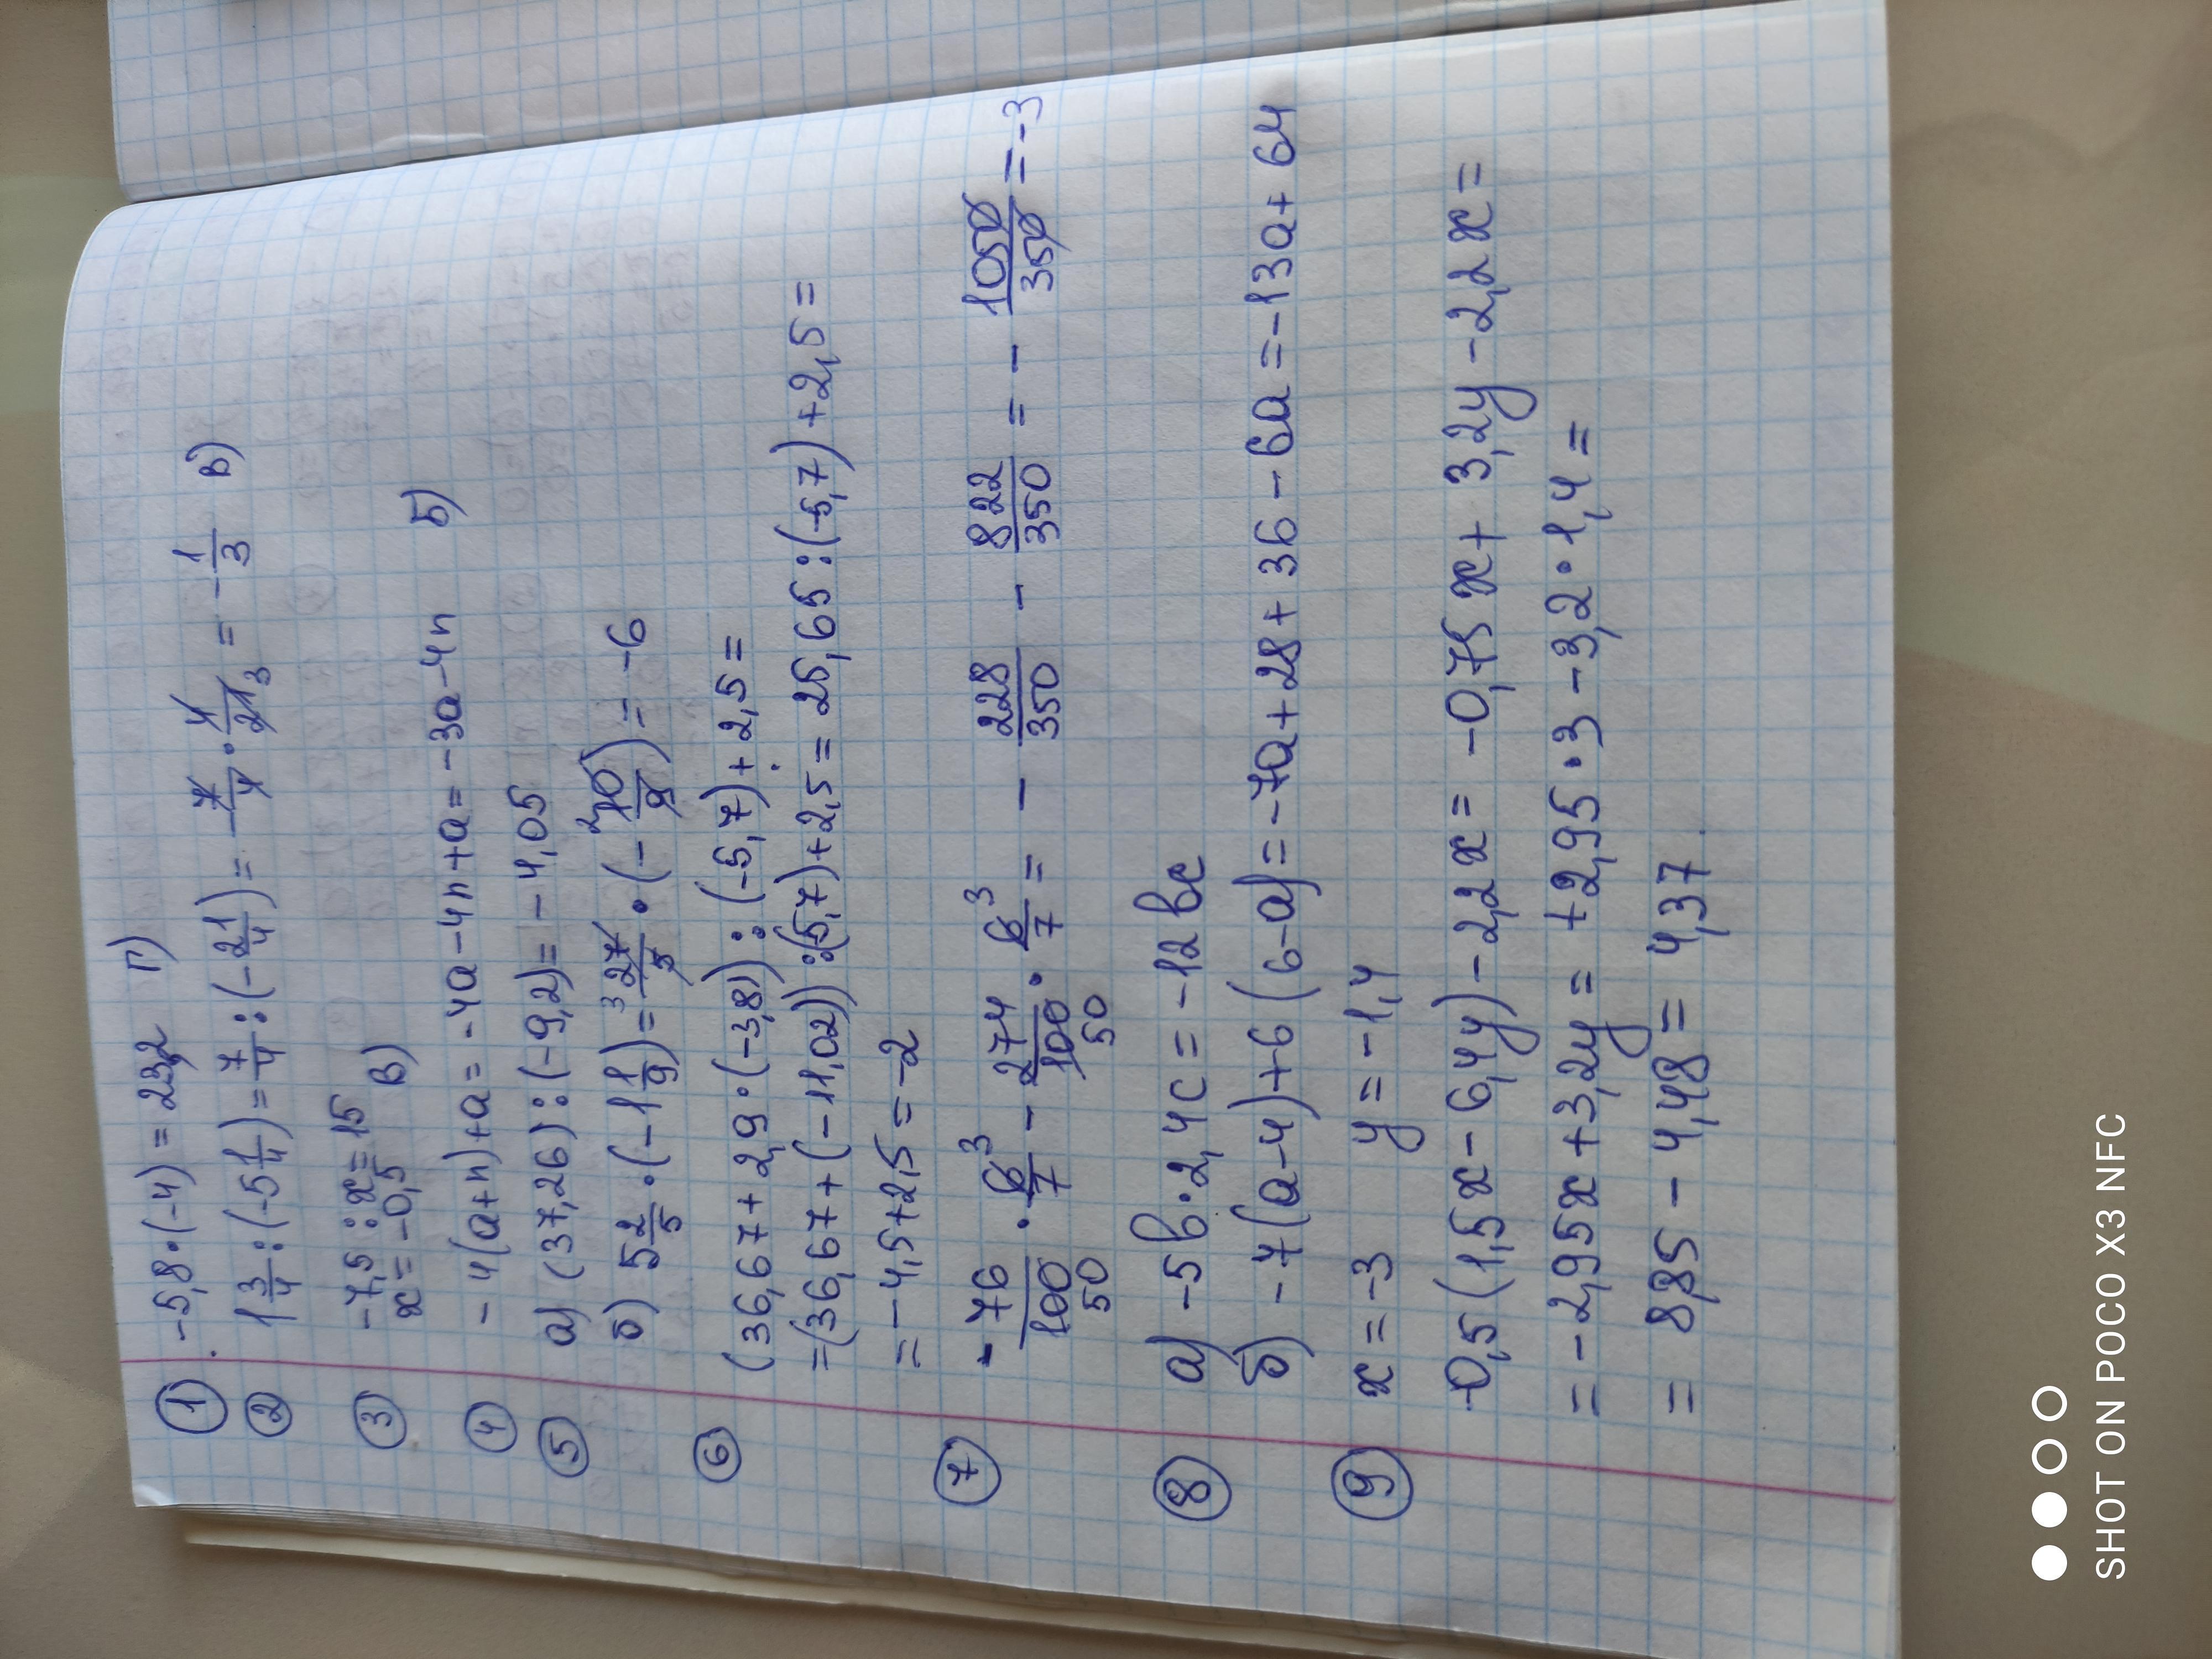 ① -5,8·(-4) = 23,2 Г)
② 1 3/4 : (-5 1/4) = 7/4 : (-21/4) = -7/4 · 4/21 3 = -1/3 В)
③ -7,5 : x = 15
x = -0,5 В)
④ -4(a+n)+a = -4a-4n+a = -3a-4n Б)
⑤ а) (37,26) : (-9,2) = -4,05
б) 5 2/5 · (-1 1/9) = 3 27/5 · (- 2 10/9) = -6
⑥ (36,67+2,9·(-3,8)) : (-5,7)+2,5 =
=(36,67+(-11,02)) : (5,7)+2,5 = 25,65 : (-5,7)+2,5 =
= -4,5+2,5 = -2
⑦ - 76/100 50 · 6 3/7 - 274/100 50 · 6 3/7 = - 228/350 - 822/350 = - 1050/350 = -3
⑧ а) -5b·2,4c = -12bc
б) -7(a-4)+6(6-a) = -7a+28+36-6a = -13a+64
⑨ x = -3 y = -1,4
-0,5(1,5x-6,4y)-2,2x = -0,75x+3,2y-2,2x =
= -2,95x+3,2y = +2,95·3-3,2·1,4 =
= 8,85-4,48 = 4,37
SHOT ON POCO X3 NFC